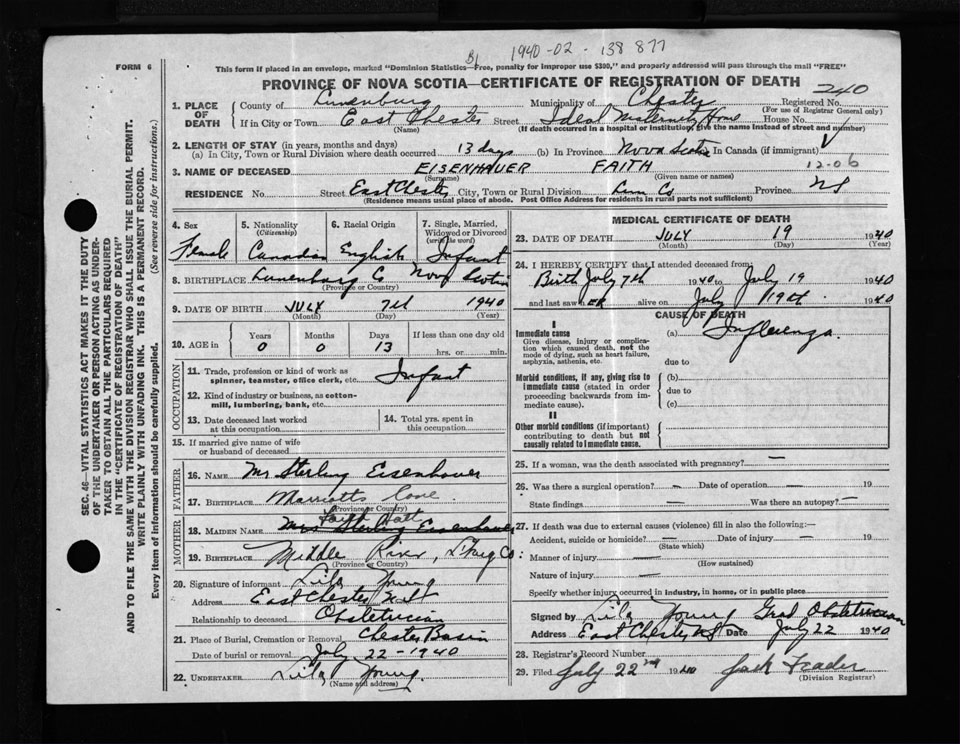 1940-02-138877
FORM 6
This form if placed in an envelope, marked "Dominion Statistics—Free, penalty for improper use $300," and properly addressed will pass through the mail "FREE"
PROVINCE OF NOVA SCOTIA—CERTIFICATE OF REGISTRATION OF DEATH
240
1. PLACE OF DEATH County of Lunenburg Municipality of Chester Registered No.
(For use of Registrar General only)
If in City or Town East Chester Street Ideal Maternity Home House No.
(Name) (If death occurred in a hospital or institution, give the name instead of street and number)
2. LENGTH OF STAY (in years, months and days)
(a) In City, Town or Rural Division where death occurred 13 days (b) In Province Nova Scotia In Canada (if immigrant)
3. NAME OF DECEASED EISENHAUER FAITH 12-06
(Surname) (Given name or names)
RESIDENCE No. Street East Chester City, Town or Rural Division Lun Co Province NS
(Residence means usual place of abode. Post Office Address for residents in rural parts not sufficient)
4. Sex Female
5. Nationality (Citizenship) Canadian
6. Racial Origin English
7. Single, Married, Widowed or Divorced (write the word) Infant
8. BIRTHPLACE Lunenburg Co Nova Scotia
(Province or Country)
9. DATE OF BIRTH JULY 7th 1940
(Month) (Day) (Year)
10. AGE in Years 0 Months 0 Days 13 If less than one day old hrs. or min.
OCCUPATION
11. Trade, profession or kind of work as spinner, teamster, office clerk, etc. Infant
12. Kind of industry or business, as cotton-mill, lumbering, bank, etc.
13. Date deceased last worked at this occupation
14. Total yrs. spent in this occupation
15. If married give name of wife or husband of deceased
FATHER
16. NAME Mr Sterling Eisenhauer
17. BIRTHPLACE Marriotts Cove
(Province or Country)
MOTHER
18. MAIDEN NAME Mrs Sterling Eisenhauer
19. BIRTHPLACE Middle River, Co.
(Province or Country)
20. Signature of informant Lila Young
Address East Chester N.S.
Relationship to deceased Obstetrician
21. Place of Burial, Cremation or Removal Chester Basin
Date of burial or removal July 22-1940
22. UNDERTAKER Lila Young
(Name and address)
MEDICAL CERTIFICATE OF DEATH
23. DATE OF DEATH JULY 19 1940
(Month) (Day) (Year)
24. I HEREBY CERTIFY that I attended deceased from:
Birth July 7th 1940 to July 19 1940
and last saw hER alive on July 19th 1940
CAUSE OF DEATH
I
Immediate cause (a) Influenza
Give disease, injury or complication which caused death, not the mode of dying, such as heart failure, asphyxia, asthenia, etc.
due to
Morbid conditions, if any, giving rise to immediate cause (stated in order proceeding backwards from immediate cause).
(b)
due to
(c)
II
Other morbid conditions (if important) contributing to death but not causally related to immediate cause.
25. If a woman, was the death associated with pregnancy? —
26. Was there a surgical operation? — Date of operation — 19
State findings — Was there an autopsy? —
27. If death was due to external causes (violence) fill in also the following:—
Accident, suicide or homicide? — Date of injury — 19
(State which)
Manner of injury —
(How sustained)
Nature of injury —
Specify whether injury occurred in industry, in home, or in public place
Signed by Lila Young Grad Obstetrician
Address East Chester NS Date July 22 1940
28. Registrar's Record Number
29. Filed July 22nd 1940 Jack Feader
(Division Registrar)
SEC. 46—VITAL STATISTICS ACT MAKES IT THE DUTY OF THE UNDERTAKER OR PERSON ACTING AS UNDERTAKER TO OBTAIN ALL THE PARTICULARS REQUIRED IN THE "CERTIFICATE OF REGISTRATION OF DEATH" AND TO FILE THE SAME WITH THE DIVISION REGISTRAR WHO SHALL ISSUE THE BURIAL PERMIT.
WRITE PLAINLY WITH UNFADING INK. THIS IS A PERMANENT RECORD.
Every item of information should be carefully supplied. (See reverse side for instructions.)